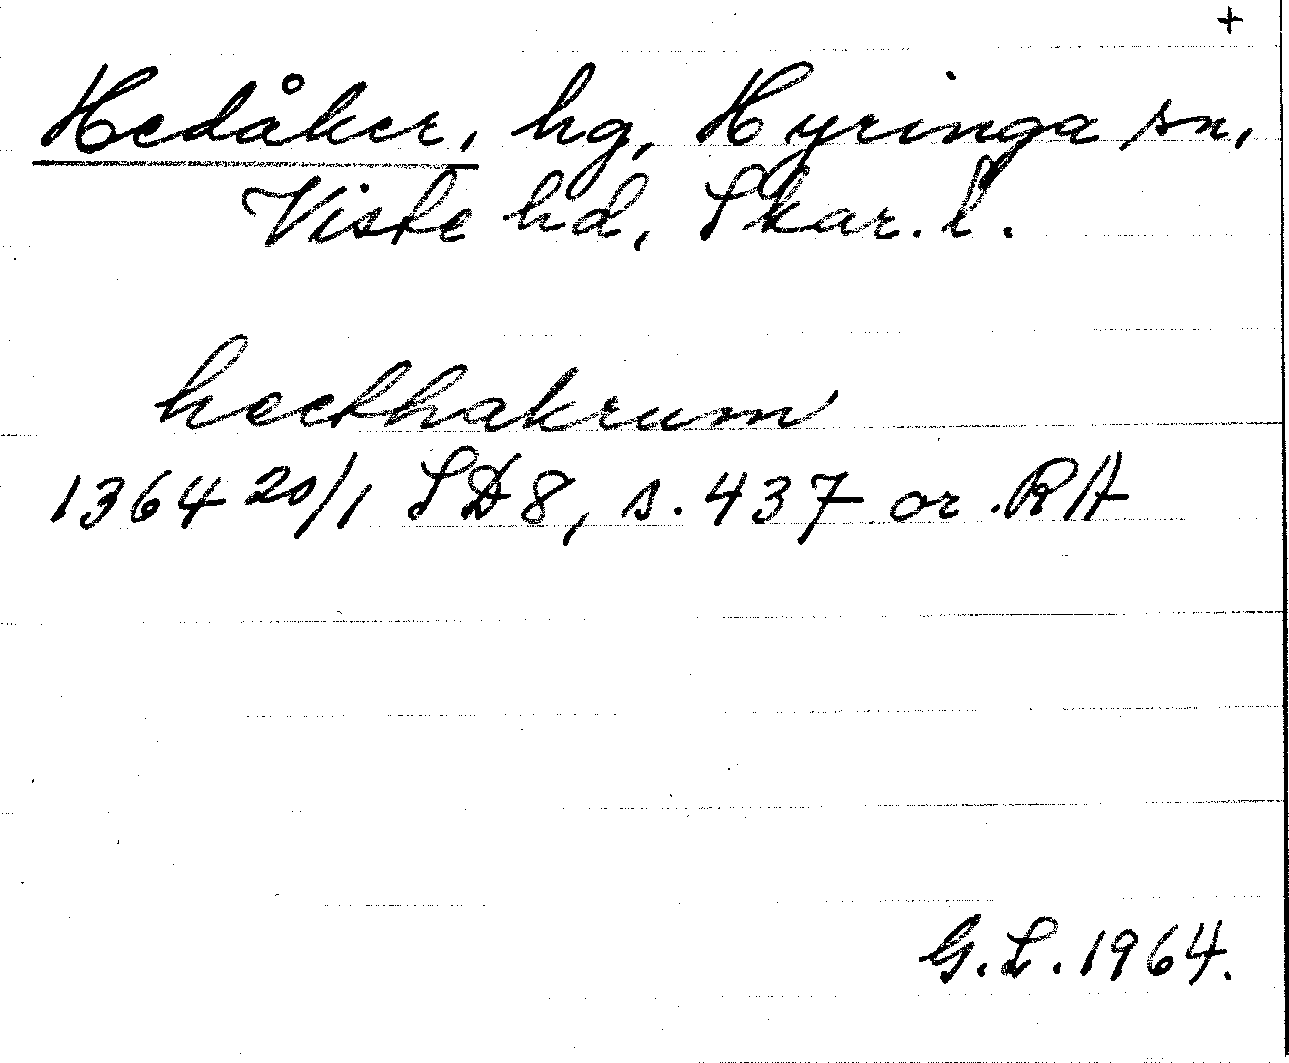 +
Hedåker, hg, Hyringa sn,
Viste hd, Skar. l.
hecthakrum
1364 20/1 SD8, s. 437 or. RA
G.L. 1964.